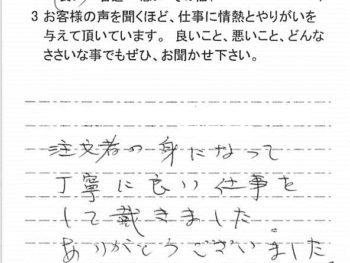 3 お客様の声を聞くほど、仕事に情熱とやりがいを
与えて頂いています。 良いこと、悪いこと、どんな
ささいな事でもぜひ、お聞かせ下さい。
注文者の身になって
丁寧に良い仕事を
して戴きました
ありがとうございました。